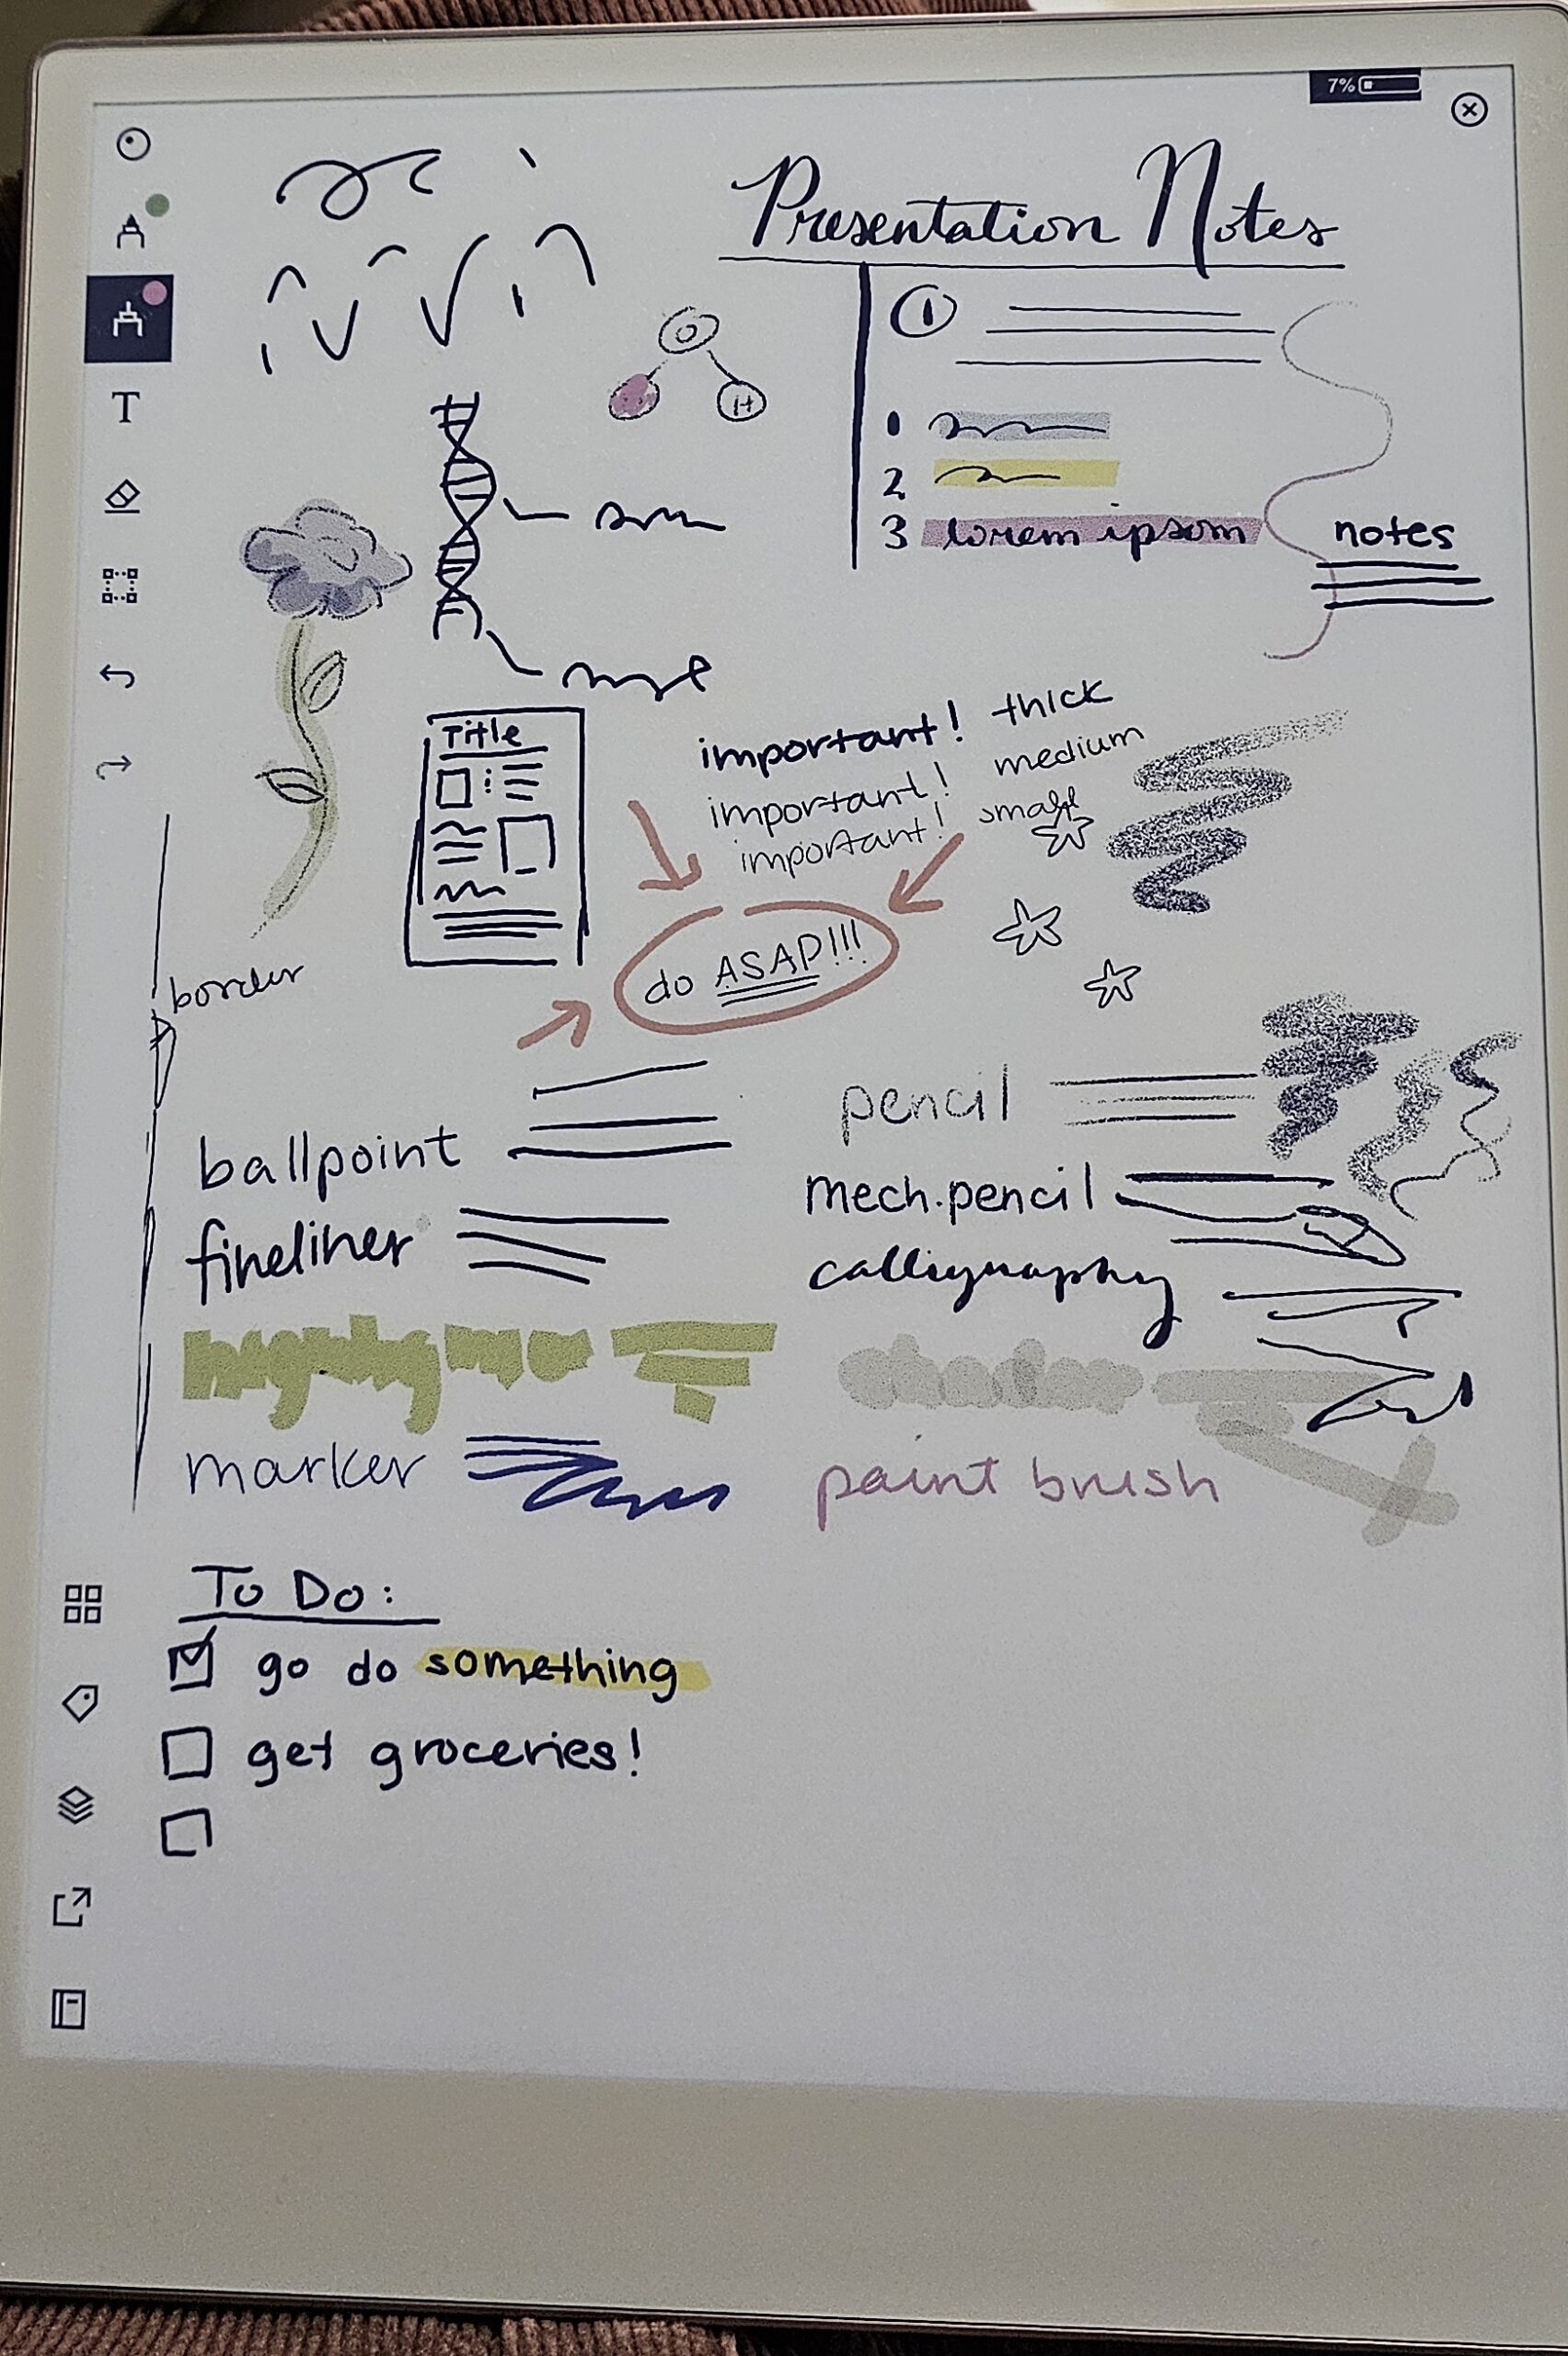 7%
Presentation Notes
1
O
H
1
2
3 lorem ipsom
notes
Title
important! thick
important! medium
important! small
do ASAP!!!
border
ballpoint
pencil
fineliner
mech.pencil
calligraphy
highlighter
shader
marker
paint brush
To Do:
go do something
get groceries!
T